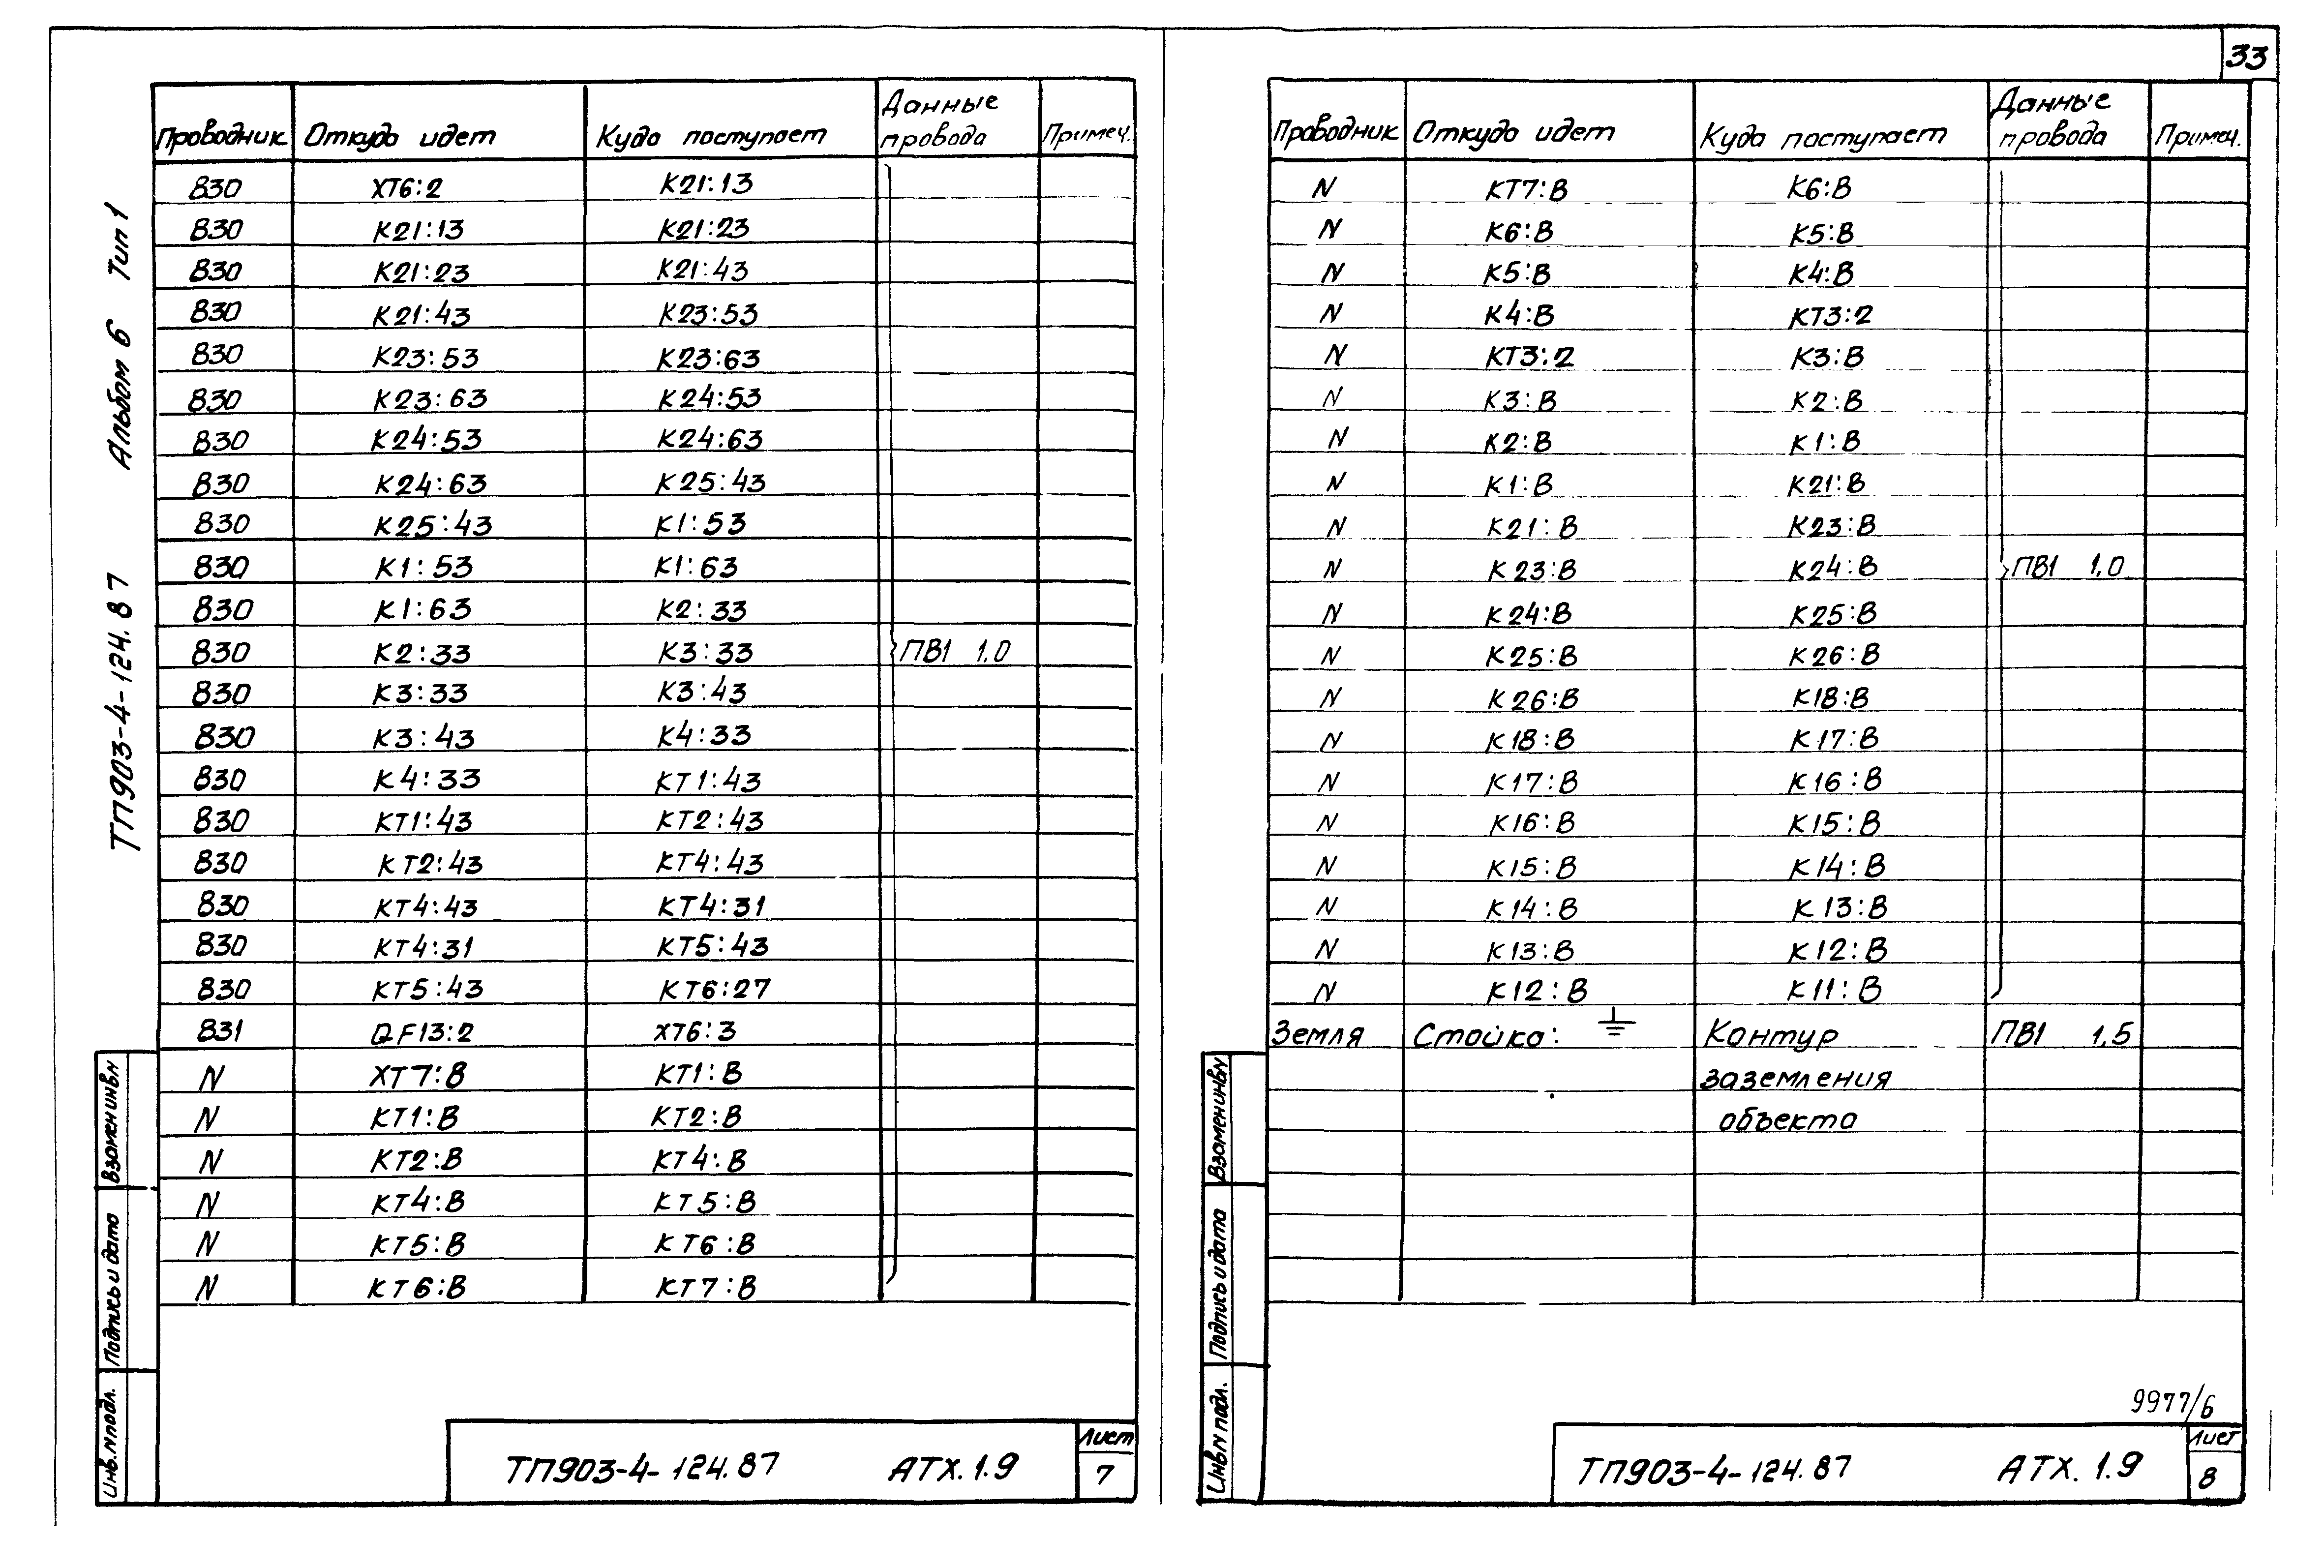 33
ТП903-4-124.87 Альбом 6 Тип 1
Проводник Откуда идет Куда поступает Данные провода Примеч.
830 XT6:2 K21:13
830 K21:13 K21:23
830 K21:23 K21:43
830 K21:43 K23:53
830 K23:53 K23:63
830 K23:63 K24:53
830 K24:53 K24:63
830 K24:63 K25:43
830 K25:43 K1:53
830 K1:53 K1:63
830 K1:63 K2:33
830 K2:33 K3:33 ПВ1 1,0
830 K3:33 K3:43
830 K3:43 K4:33
830 K4:33 KT1:43
830 KT1:43 KT2:43
830 KT2:43 KT4:43
830 KT4:43 KT4:31
830 KT4:31 KT5:43
830 KT5:43 KT6:27
831 QF13:2 XT6:3
N XT7:8 KT1:B
N KT1:B KT2:B
N KT2:B KT4:B
N KT4:B KT5:B
N KT5:B KT6:B
N KT6:B KT7:B
Взамен инв.N
Подпись и дата
Инв.N подл.
ТП903-4-124.87 АТХ.1.9 Лист 7
Проводник Откуда идет Куда поступает Данные провода Примеч.
N KT7:B K6:B
N K6:B K5:B
N K5:B K4:B
N K4:B KT3:2
N KT3:2 K3:B
N K3:B K2:B
N K2:B K1:B
N K1:B K21:B
N K21:B K23:B
N K23:B K24:B ПВ1 1,0
N K24:B K25:B
N K25:B K26:B
N K26:B K18:B
N K18:B K17:B
N K17:B K16:B
N K16:B K15:B
N K15:B K14:B
N K14:B K13:B
N K13:B K12:B
N K12:B K11:B
Земля Стойка: ⏚ Контур ПВ1 1,5
заземления
объекта
Взамен инв.N
Подпись и дата
Инв.N подл.
9977/6
ТП903-4-124.87 АТХ.1.9 Лист 8